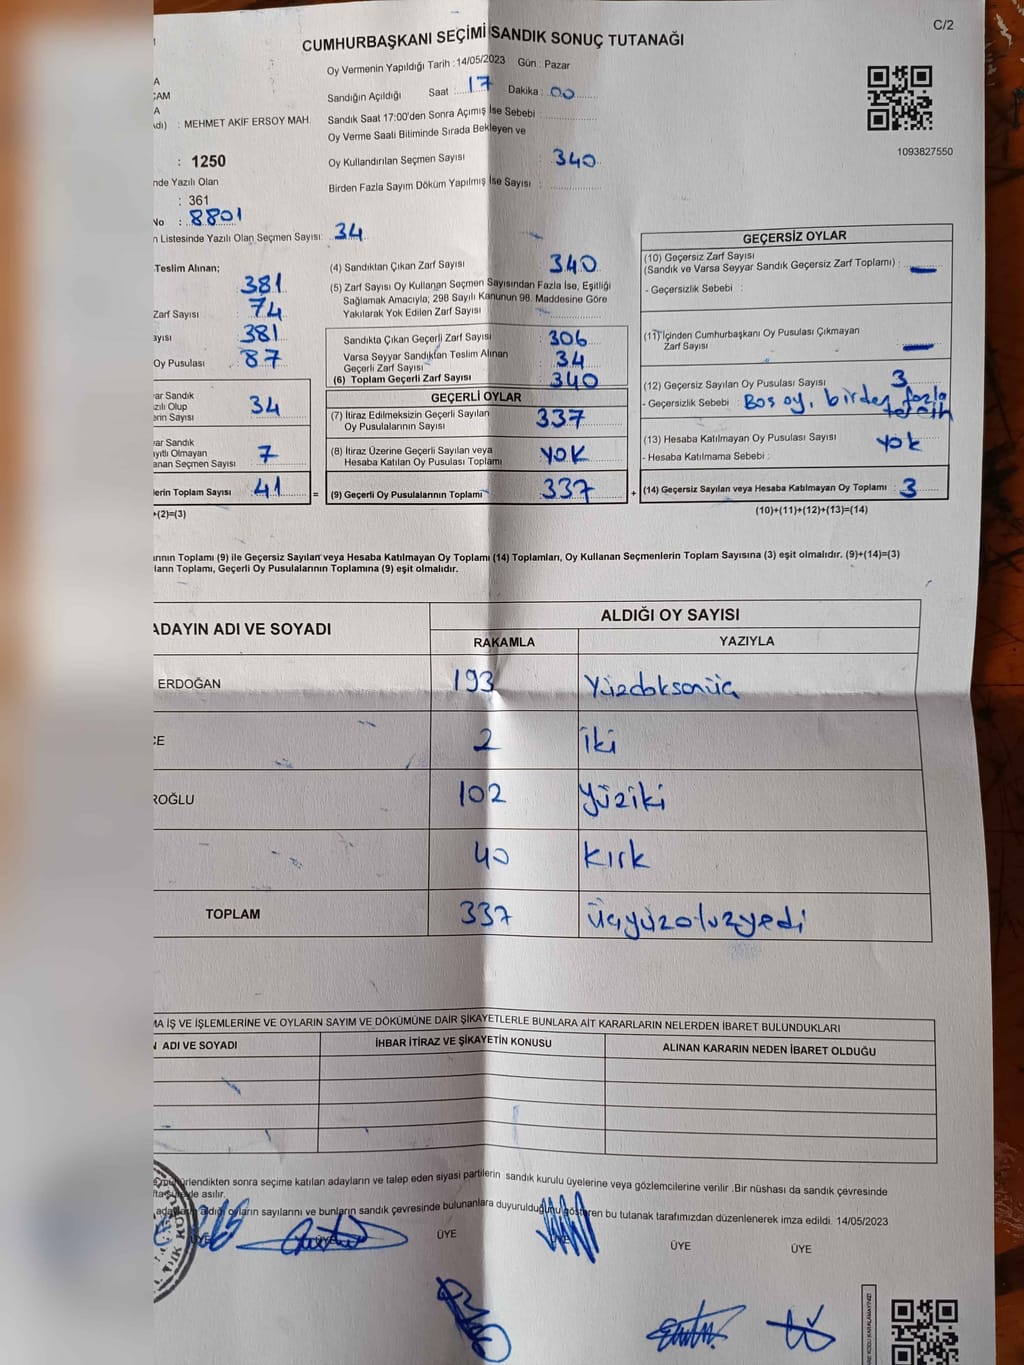 C/2
CUMHURBAŞKANI SEÇİMİ SANDIK SONUÇ TUTANAĞI
Oy Vermenin Yapıldığı Tarih : 14/05/2023 Gün : Pazar
Sandığın Açıldığı Saat : 17 Dakika : 00
Sandık Saat 17:00'den Sonra Açımış İse Sebebi :
Oy Verme Saati Bitiminde Sırada Bekleyen ve
Oy Kullandırılan Seçmen Sayısı : 340
Birden Fazla Sayım Döküm Yapılmış İse Sayısı :
1093827550
A
ÇAM
A
Adı) : MEHMET AKİF ERSOY MAH.
: 1250
nde Yazılı Olan
: 361
No : 8801
n Listesinde Yazılı Olan Seçmen Sayısı: 34
Teslim Alınan;
381
Zarf Sayısı 74
ayısı 381
Oy Pusulası 87
ar Sandık
zılı Olup
erin Sayısı 34
ar Sandık
ayıtlı Olmayan
anan Seçmen Sayısı 7
lerin Toplam Sayısı 41 =
+(2)=(3)
(4) Sandıktan Çıkan Zarf Sayısı 340
(5) Zarf Sayısı Oy Kullanan Seçmen Sayısından Fazla İse, Eşitliği
Sağlamak Amacıyla; 298 Sayılı Kanunun 98. Maddesine Göre
Yakılarak Yok Edilen Zarf Sayısı :
Sandıkta Çıkan Geçerli Zarf Sayısı 306
Varsa Seyyar Sandıktan Teslim Alınan
Geçerli Zarf Sayısı 34
(6) Toplam Geçerli Zarf Sayısı 340
GEÇERLİ OYLAR
(7) İtiraz Edilmeksizin Geçerli Sayılan
Oy Pusulalarının Sayısı 337
(8) İtiraz Üzerine Geçerli Sayılan veya
Hesaba Katılan Oy Pusulası Toplamı YOK
(9) Geçerli Oy Pusulalarının Toplamı 337 +
GEÇERSİZ OYLAR
(10) Geçersiz Zarf Sayısı
(Sandık ve Varsa Seyyar Sandık Geçersiz Zarf Toplamı) : —
- Geçersizlik Sebebi :
(11) İçinden Cumhurbaşkanı Oy Pusulası Çıkmayan
Zarf Sayısı —
(12) Geçersiz Sayılan Oy Pusulası Sayısı 3
- Geçersizlik Sebebi : Bos oy, birden fazla
tercih
(13) Hesaba Katılmayan Oy Pusulası Sayısı YOK
- Hesaba Katılmama Sebebi :
(14) Geçersiz Sayılan veya Hesaba Katılmayan Oy Toplamı : 3
(10)+(11)+(12)+(13)=(14)
ının Toplamı (9) ile Geçersiz Sayılan veya Hesaba Katılmayan Oy Toplamı (14) Toplamları, Oy Kullanan Seçmenlerin Toplam Sayısına (3) eşit olmalıdır. (9)+(14)=(3)
ların Toplamı, Geçerli Oy Pusulalarının Toplamına (9) eşit olmalıdır.
ADAYIN ADI VE SOYADI
ALDIĞI OY SAYISI
RAKAMLA YAZIYLA
ERDOĞAN 193 Yüzdoksanüç
CE 2 İki
ROĞLU 102 Yüziki
40 Kırk
TOPLAM 337 Üçyüzotuzyedi
MA İŞ VE İŞLEMLERİNE VE OYLARIN SAYIM VE DÖKÜMÜNE DAİR ŞİKAYETLERLE BUNLARA AİT KARARLARIN NELERDEN İBARET BULUNDUKLARI
N ADI VE SOYADI İHBAR İTİRAZ VE ŞİKAYETİN KONUSU ALINAN KARARIN NEDEN İBARET OLDUĞU
mühürlendikten sonra seçime katılan adayların ve talep eden siyasi partilerin sandık kurulu üyelerine veya gözlemcilerine verilir .Bir nüshası da sandık çevresinde
asılır.
adayların aldığı oyların sayılarını ve bunların sandık çevresinde bulunanlara duyurulduğunu gösteren bu tutanak tarafımızdan düzenlenerek imza edildi. 14/05/2023
ÜYE ÜYE ÜYE ÜYE ÜYE ÜYE